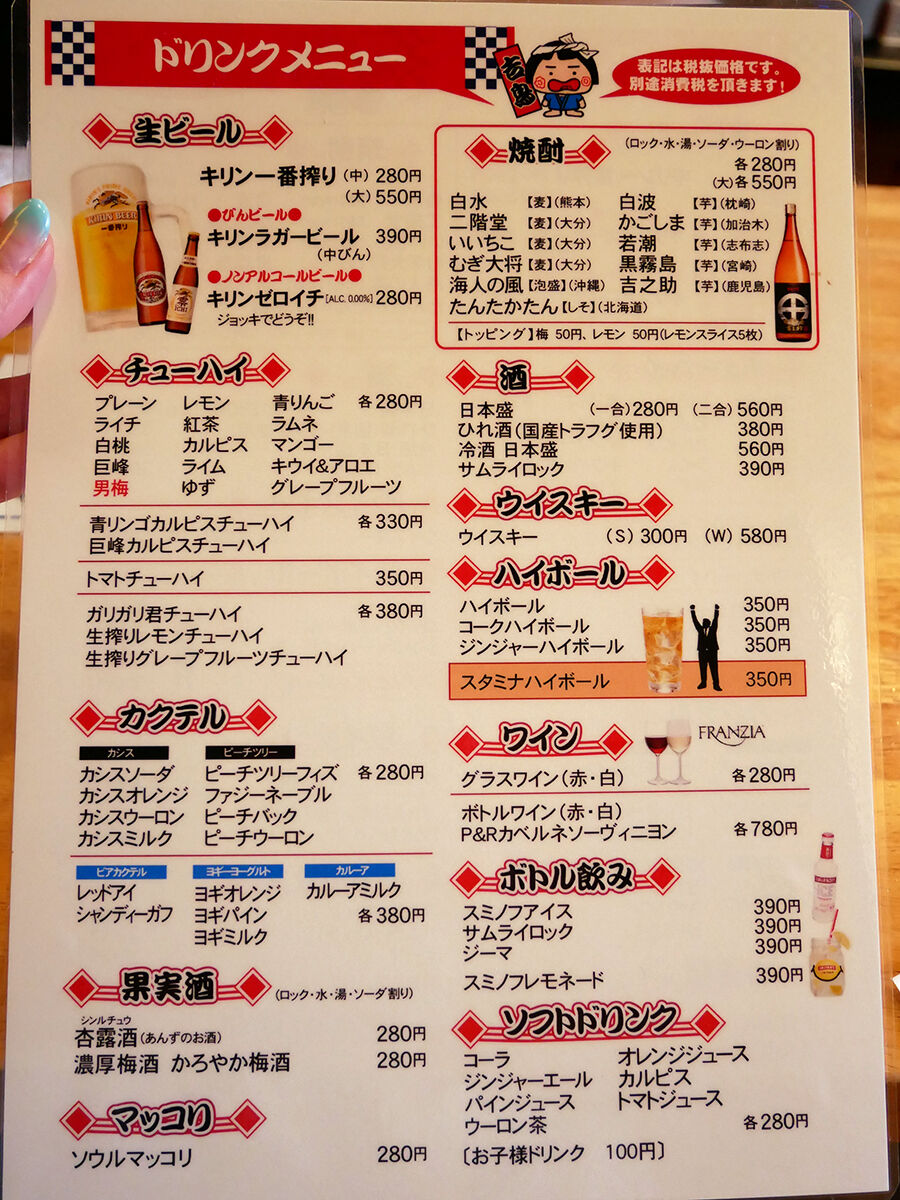 ドリンクメニュー
吉鳥
表記は税抜価格です。
別途消費税を頂きます!
生ビール
キリン一番搾り(中) 280円
(大) 550円
●びんビール●
キリンラガービール 390円
(中びん)
●ノンアルコールビール●
キリンゼロイチ[ALC. 0.00%] 280円
ジョッキでどうぞ!!
KIRIN BEER
一番搾り
チューハイ
プレーン レモン 青りんご 各280円
ライチ 紅茶 ラムネ
白桃 カルピス マンゴー
巨峰 ライム キウイ&アロエ
男梅 ゆず グレープフルーツ
青リンゴカルピスチューハイ 各330円
巨峰カルピスチューハイ
トマトチューハイ 350円
ガリガリ君チューハイ 各380円
生搾りレモンチューハイ
生搾りグレープフルーツチューハイ
カクテル
カシス ピーチツリー
カシスソーダ ピーチツリーフィズ 各280円
カシスオレンジ ファジーネーブル
カシスウーロン ピーチバック
カシスミルク ピーチウーロン
ビアカクテル ヨギーヨーグルト カルーア
レッドアイ ヨギオレンジ カルーアミルク
シャンディーガフ ヨギパイン 各380円
ヨギミルク
果実酒 (ロック・水・湯・ソーダ割り)
シンルチュウ
杏露酒(あんずのお酒) 280円
濃厚梅酒 かろやか梅酒 280円
マッコリ
ソウルマッコリ 280円
焼酎 (ロック・水・湯・ソーダ・ウーロン割り)
各280円
(大)各550円
白水 【麦】(熊本) 白波 【芋】(枕崎)
二階堂 【麦】(大分) かごしま 【芋】(加治木)
いいちこ 【麦】(大分) 若潮 【芋】(志布志)
むぎ大将 【麦】(大分) 黒霧島 【芋】(宮崎)
海人の風 【泡盛】(沖縄) 吉之助 【芋】(鹿児島)
たんたかたん【しそ】(北海道)
【トッピング】梅 50円、レモン 50円(レモンスライス5枚)
酒
日本盛 (一合)280円 (二合) 560円
ひれ酒(国産トラフグ使用) 380円
冷酒 日本盛 560円
サムライロック 390円
ウイスキー
ウイスキー (S) 300円 (W) 580円
ハイボール
ハイボール 350円
コークハイボール 350円
ジンジャーハイボール 350円
スタミナハイボール 350円
ワイン
FRANZIA
グラスワイン(赤・白) 各280円
ボトルワイン(赤・白)
P&Rカベルネソーヴィニヨン 各780円
ボトル飲み
スミノフアイス 390円
サムライロック 390円
ジーマ 390円
スミノフレモネード 390円
ICE
ソフトドリンク
コーラ オレンジジュース
ジンジャーエール カルピス
パインジュース トマトジュース
ウーロン茶 各280円
〔お子様ドリンク 100円〕